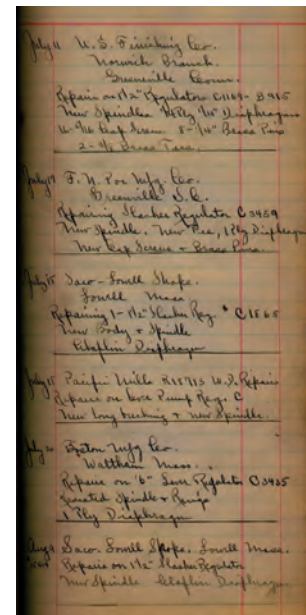 July 11 U.S. Finishing Co.
Norwich Branch.
Greenville Conn.
Repairs on 1½" Regulators C1169 - B915
New Spindles Ply Diaphragms
Cap Screws 8 - Brass Pins
2 - Brass
July 19 F. W. Poe Mfg. Co.
Greenville S.C.
Repairing Slasher Regulator C3459
New Spindle, New 1 Ply Diaphragm
New Cap Screws + Brass Pins.
July 15 Saco-Lowell Shops.
Lowell Mass
Repairing 1 - 1½" Slasher Reg. C1565
New Body + Spindle
Diaphragm
July 15 Pacific Mills W.D. Repairs
Repairs on Pump Reg. C
New Long bushing + New Spindle.
July 20 Boston Mfg Co.
Waltham Mass.
Repairs on 6" Regulator C3435
Spindle + Rings
1 Ply Diaphragm
Aug 9 Saco-Lowell Shops. Lowell Mass.
Repairs on 1½" Slasher Regulator
New Spindle Diaphragm.